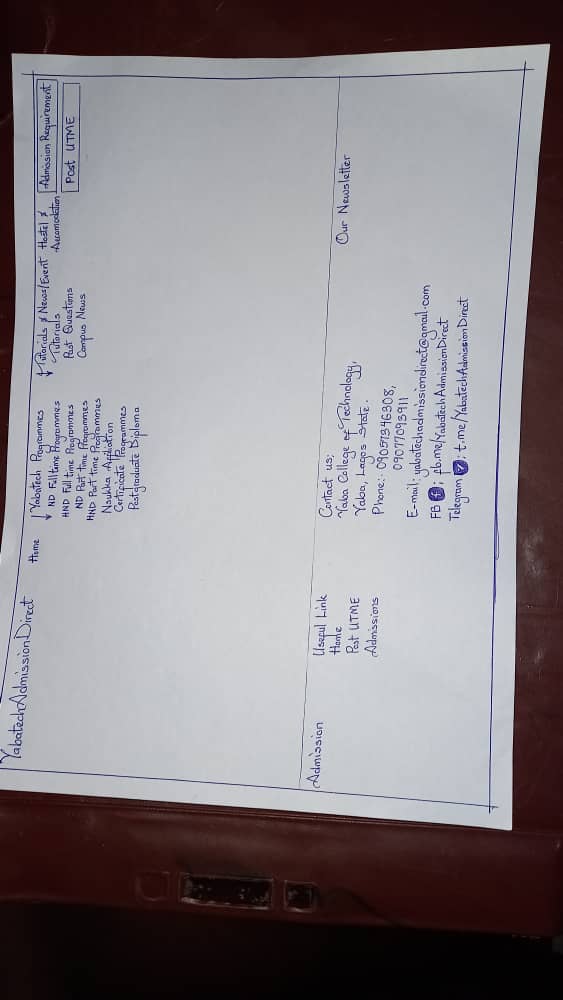 YabatechAdmissionDirect
Home
Yabatech Programmes
ND Full time Programmes
HND Full time Programmes
ND Part time Programmes
HND Part time Programmes
Nsukka Affiliation
Certificate Programmes
Postgraduate Diploma
Tutorials & News/Event
Tutorials
Past Questions
Campus News
Hostel &
Accomodation
Admission Requirement
Post UTME
Admission
Useful Link
Home
Post UTME
Admissions
Contact us:
Yaba College of Technology,
Yaba, Lagos State.
Phone:- 09057346308,
09077093911
E-mail: yabatechadmissiondirect@gmail.com
FB f: fb.me/YabatechAdmissionDirect
Telegram: t.me/YabatechAdmissionDirect
Our Newsletter